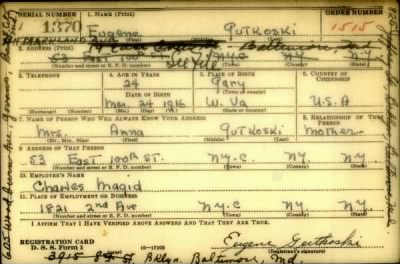 SERIAL NUMBER 1. NAME (Print) ORDER NUMBER
1370 Eugene GUTKOSKI 1515
(First) (Middle) (Last)
2. ADDRESS (Print)
Baltimore, Md.
53 East 100th ST. N.Y.C. N.Y. N.Y.
(Number and street or R. F. D. number) (Town) (County) (State)
3. TELEPHONE 4. AGE IN YEARS 5. PLACE OF BIRTH 6. COUNTRY OF CITIZENSHIP
24 Gary
DATE OF BIRTH
Mar. 24 1916 W. Va U.S.A
(Exchange) (Number) (Mo.) (Day) (Yr.) (State or country)
7. NAME OF PERSON WHO WILL ALWAYS KNOW YOUR ADDRESS 8. RELATIONSHIP OF THAT PERSON
Mrs. Anna GUTKOSKI Mother
(Mr., Mrs., Miss) (First) (Middle) (Last)
9. ADDRESS OF THAT PERSON
53 EAST 100th ST. N.Y.C NY. N.Y.
(Number and street or R. F. D. number) (Town) (County) (State)
10. EMPLOYER'S NAME
Charles Magid
11. PLACE OF EMPLOYMENT OR BUSINESS
1821 2nd Ave N.Y.C NY N.Y.
(Number and street or R. F. D. number) (Town) (County) (State)
I AFFIRM THAT I HAVE VERIFIED ABOVE ANSWERS AND THAT THEY ARE TRUE.
REGISTRATION CARD
D. S. S. Form 1 16-17105 Eugene Gutkoski
(Registrant's signature)
Baltimore, Md.